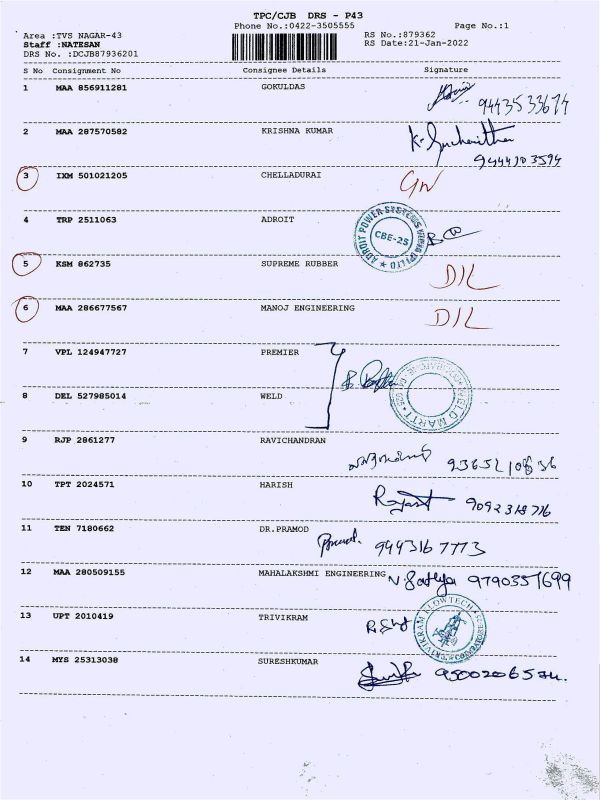 TPC/CJB DRS - P43
Phone No.:0422-3505555 Page No.:1
Area :TVS NAGAR-43 RS No.:879362
Staff :NATESAN RS Date:21-Jan-2022
DRS No. :DCJB87936201
S No Consignment No Consignee Details Signature
1 MAA 856911281 GOKULDAS
9443533674
2 MAA 287570582 KRISHNA KUMAR
9444103594
3 IXM 501021205 CHELLADURAI
4 TRP 2511063 ADROIT
ADROIT POWER SYSTEMS CBE-25
5 KSM 862735 SUPREME RUBBER
D/L
6 MAA 286677567 MANOJ ENGINEERING
D/L
7 VPL 124947727 PREMIER
8 DEL 527985014 WELD
WELD MART
9 RJP 2861277 RAVICHANDRAN
10 TPT 2024571 HARISH
9092318716
11 TEN 7180662 DR.PRAMOD
9443167773
12 MAA 280509155 MAHALAKSHMI ENGINEERING N. Sathya 9790351699
13 UPT 2010419 TRIVIKRAM
TRIVIKRAM FLOWTECH
14 MYS 25313038 SURESHKUMAR